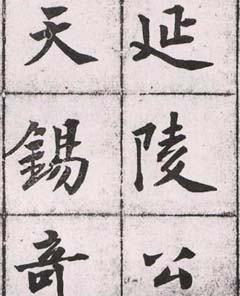 延陵公
天錫奇